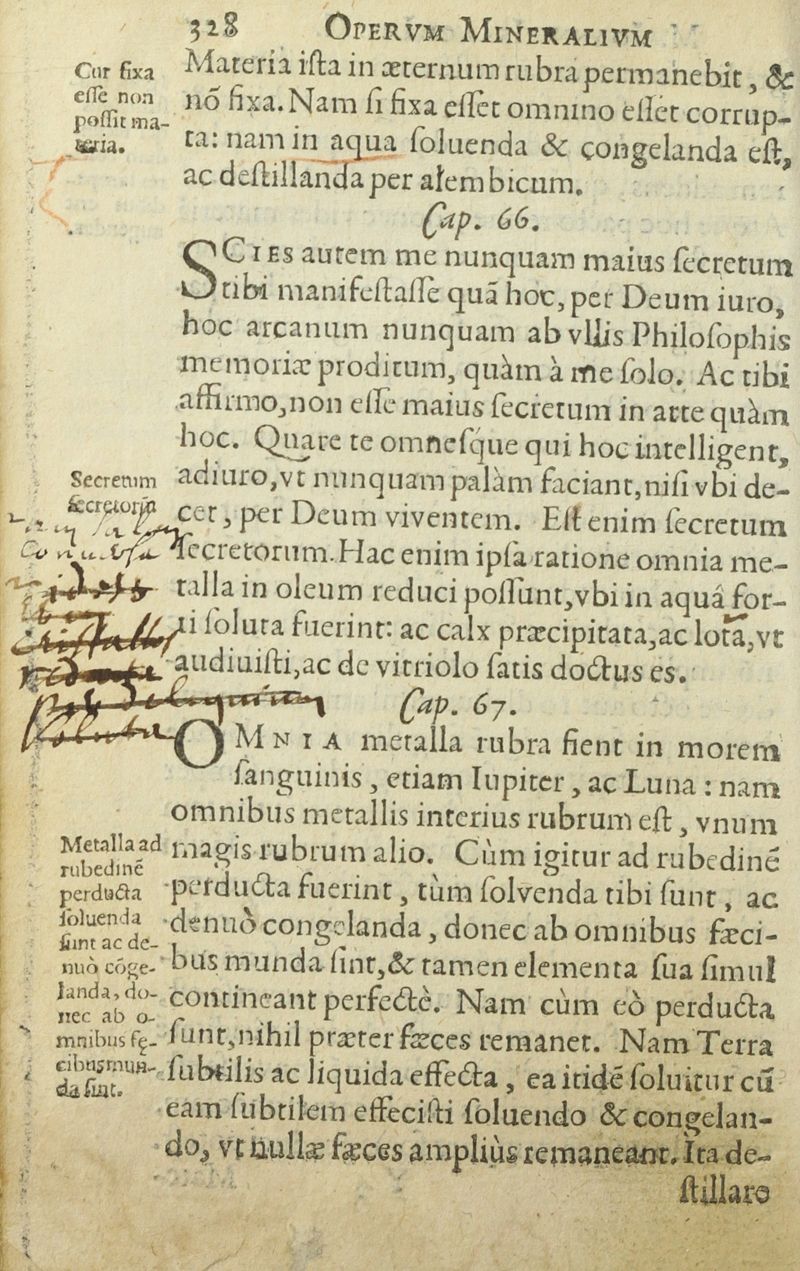 328 OPERVM MINERALIVM
Cur fixa
eſſe non
poſſit ma-
teria.
Materia iſta in æternum rubra permanebit, &
nõ fixa. Nam ſi fixa eſſet omnino eſſet corrup-
ta: nam in aqua ſoluenda & congelanda eſt,
ac deſtillanda per alembicum.
Cap. 66.
SCIES autem me nunquam maius ſecretum
tibi manifeſtaſſe quã hoc, per Deum iuro,
hoc arcanum nunquam ab vllis Philoſophis
memoriæ proditum, quàm à me ſolo. Ac tibi
affirmo, non eſſe maius ſecretum in arte quàm
hoc. Quare te omneſque qui hoc intelligent,
adiuro, vt nunquam palàm faciant, niſi vbi de-
Secretum
ſecretorũ
cet, per Deum viventem. Eſt enim ſecretum
ſecretorum. Hac enim ipſa ratione omnia me-
talla in oleum reduci poſſunt, vbi in aquá for-
ti ſoluta fuerint: ac calx præcipitata, ac lota, vt
audiuiſti, ac de vitriolo ſatis doctus es.
Cap. 67.
OMNIA metalla rubra fient in morem
ſanguinis, etiam Iupiter, ac Luna: nam
omnibus metallis interius rubrum eſt, vnum
Metalla ad
rubedinẽ
perducta
ſoluenda
ſunt ac de-
nuò cõge-
landa, do-
nec ab o-
mnibus fę-
cibus mun-
da ſint.
magis rubrum alio. Cùm igitur ad rubedinẽ
perducta fuerint, tùm ſolvenda tibi ſunt, ac
denuò congelanda, donec ab omnibus fæci-
bus munda ſint, & tamen elementa ſua ſimul
contineant perfectè. Nam cùm eò perducta
ſunt, nihil præter fæces remanet. Nam Terra
ſubtilis ac liquida effecta, ea itidẽ ſoluitur cũ
eam ſubtilem effeciſti ſoluendo & congelan-
do, vt nullæ fæces ampliùs remaneant. Ita de-
ſtillare